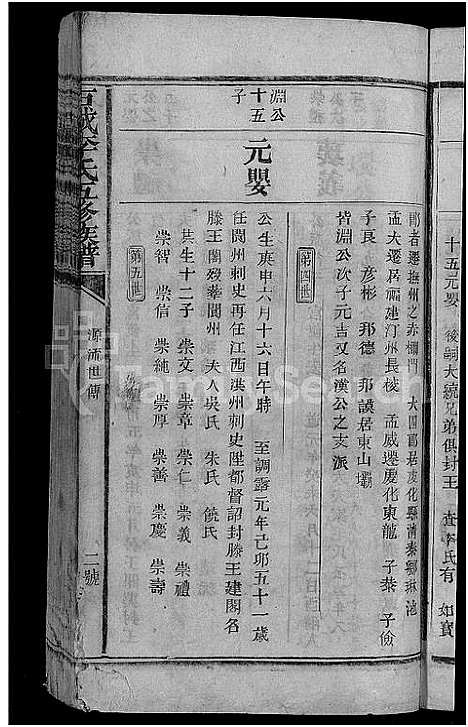 十五元嬰 後嗣大統兄弟俱封王 查李氏有 如寶
郡者遷撫州之赤欄門 大四郎居慶化縣清泰鄉琳池
孟大遷居福建汀州長校 孟威遷慶化東龍 子榮 子儉
子長 彥彬 邦德 邦謨居東山壩
皆淵公次子元吉又名漢公之支派
第四世
淵公
十五
子
元嬰
公生庚申六月十六日午時 至調露元年己卯五十一歲
任閬州刺史再任江西洪州刺史陞都督詔封滕王建閣名
滕王閣後葬閬州 夫人吳氏 朱氏 饒氏
共生十二子 崇文 崇章 崇仁 崇義 崇禮
崇智 崇信 崇純 崇厚 崇善 崇慶 崇壽
第五世
石城李氏五修族譜
源流世傳
二號